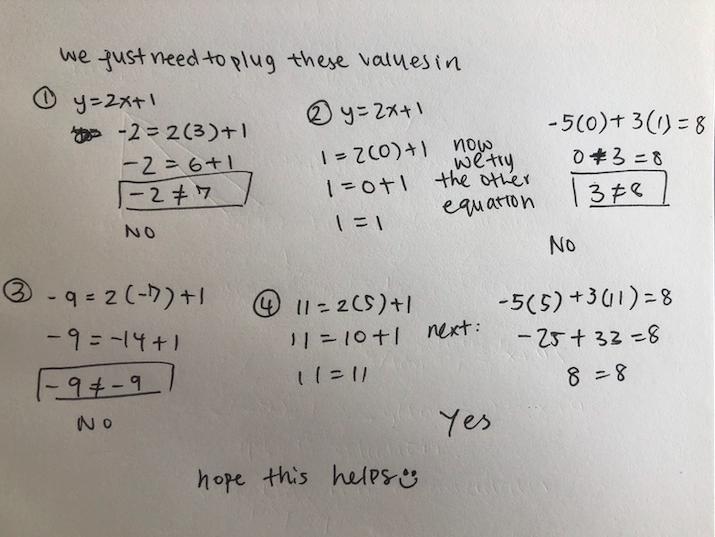 we just need to plug these values in
① y=2x+1
-2=2(3)+1
-2=6+1
-2≠7
NO
② y=2x+1
1=2(0)+1
1=0+1
1=1
now
we try
the other
equation
-5(0)+3(1)=8
0+3=8
3≠8
No
③ -9=2(-7)+1
-9=-14+1
-9≠-9
NO
④ 11=2(5)+1
11=10+1
11=11
next:
-5(5)+3(11)=8
-25+33=8
8=8
Yes
hope this helps☺